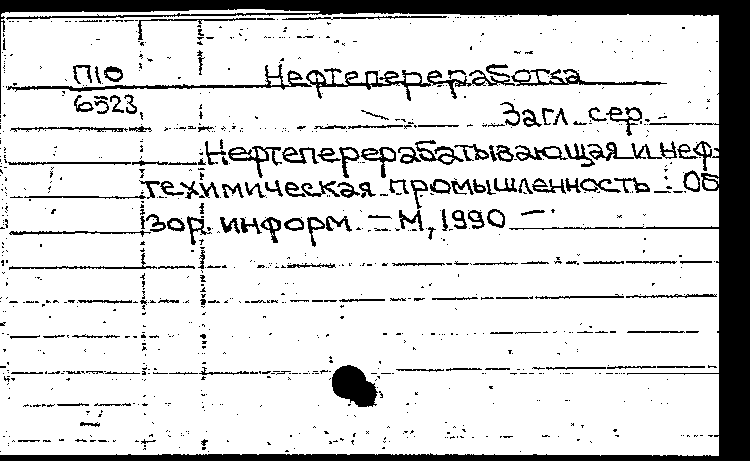 П10 Нефтепереработка
6523
Загл. сер.
Нефтеперерабатывающая и неф-
техимическая промышленность : Об
зор. информ. — М, 1990 —.